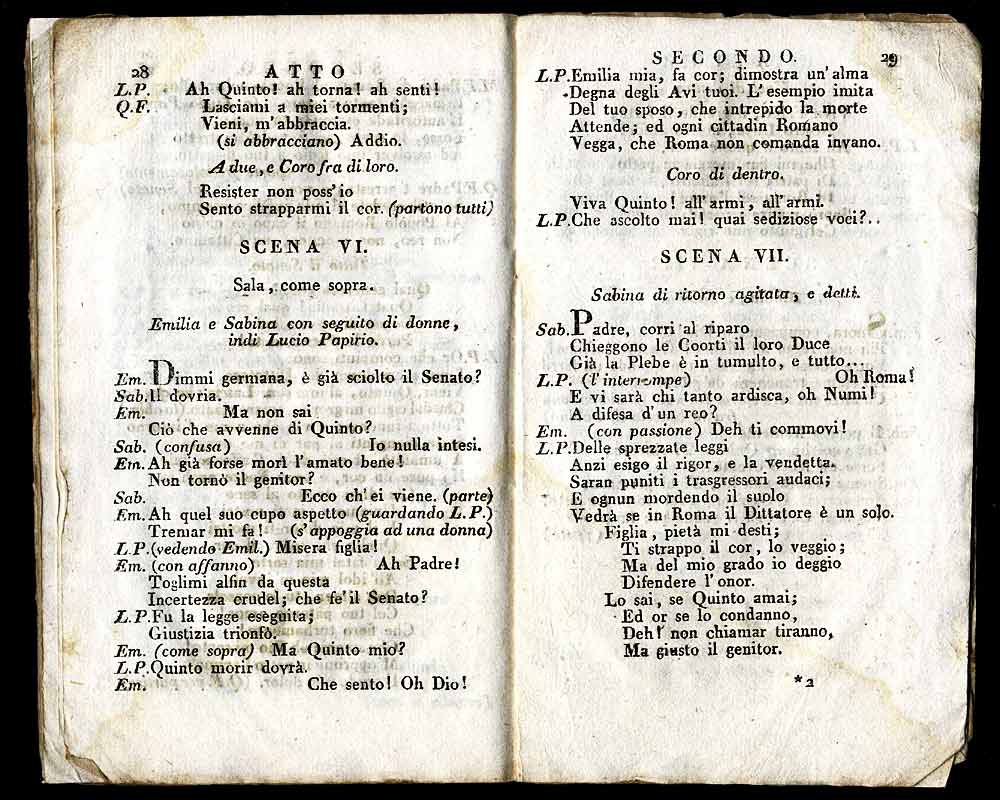 28 ATTO
L.P. Ah Quinto! ah torna! ah senti!
Q.F. Lasciami a miei tormenti;
Vieni, m'abbraccia.
(si abbracciano) Addio.
A due, e Coro fra di loro.
Resister non poss'io
Sento strapparmi il cor. (partono tutti)
SCENA VI.
Sala, come sopra.
Emilia e Sabina con seguito di donne,
indi Lucio Papirio.
Em. Dimmi germana, è già sciolto il Senato?
Sab. Il dovria.
Em. Ma non sai
Ciò che avvenne di Quinto?
Sab. (confusa) Io nulla intesi.
Em. Ah già forse morì l'amato bene!
Non tornò il genitor?
Sab. Ecco ch'ei viene. (parte)
Em. Ah quel suo cupo aspetto (guardando L.P.)
Tremar mi fa! (s'appoggia ad una donna)
L.P. (vedendo Emil.) Misera figlia!
Em. (con affanno) Ah Padre!
Toglimi alfin da questa
Incertezza crudel; che fe' il Senato?
L.P. Fu la legge eseguita;
Giustizia trionfò.
Em. (come sopra) Ma Quinto mio?
L.P. Quinto morir dovrà.
Em. Che sento! Oh Dio!
SECONDO. 29
L.P. Emilia mia, fa cor; dimostra un'alma
Degna degli Avi tuoi. L'esempio imita
Del tuo sposo, che intrepido la morte
Attende; ed ogni cittadin Romano
Vegga, che Roma non comanda invano.
Coro di dentro.
Viva Quinto! all'armi, all'armi.
L.P. Che ascolto mai! quai sediziose voci?..
SCENA VII.
Sabina di ritorno agitata, e detti.
Sab. Padre, corri al riparo
Chieggono le Coorti il loro Duce
Già la Plebe è in tumulto, e tutto...
L.P. (l'interrompe) Oh Roma!
E vi sarà chi tanto ardisca, oh Numi!
A difesa d'un reo?
Em. (con passione) Deh ti commovi!
L.P. Delle sprezzate leggi
Anzi esigo il rigor, e la vendetta.
Saran puniti i trasgressori audaci;
E ognun mordendo il suolo
Vedrà se in Roma il Dittatore è un solo.
Figlia, pietà mi desti;
Ti strappo il cor, lo veggio;
Ma del mio grado io deggio
Difendere l'onor.
Lo sai, se Quinto amai;
Ed or se lo condanno,
Deh! non chiamar tiranno,
Ma giusto il genitor.
*2